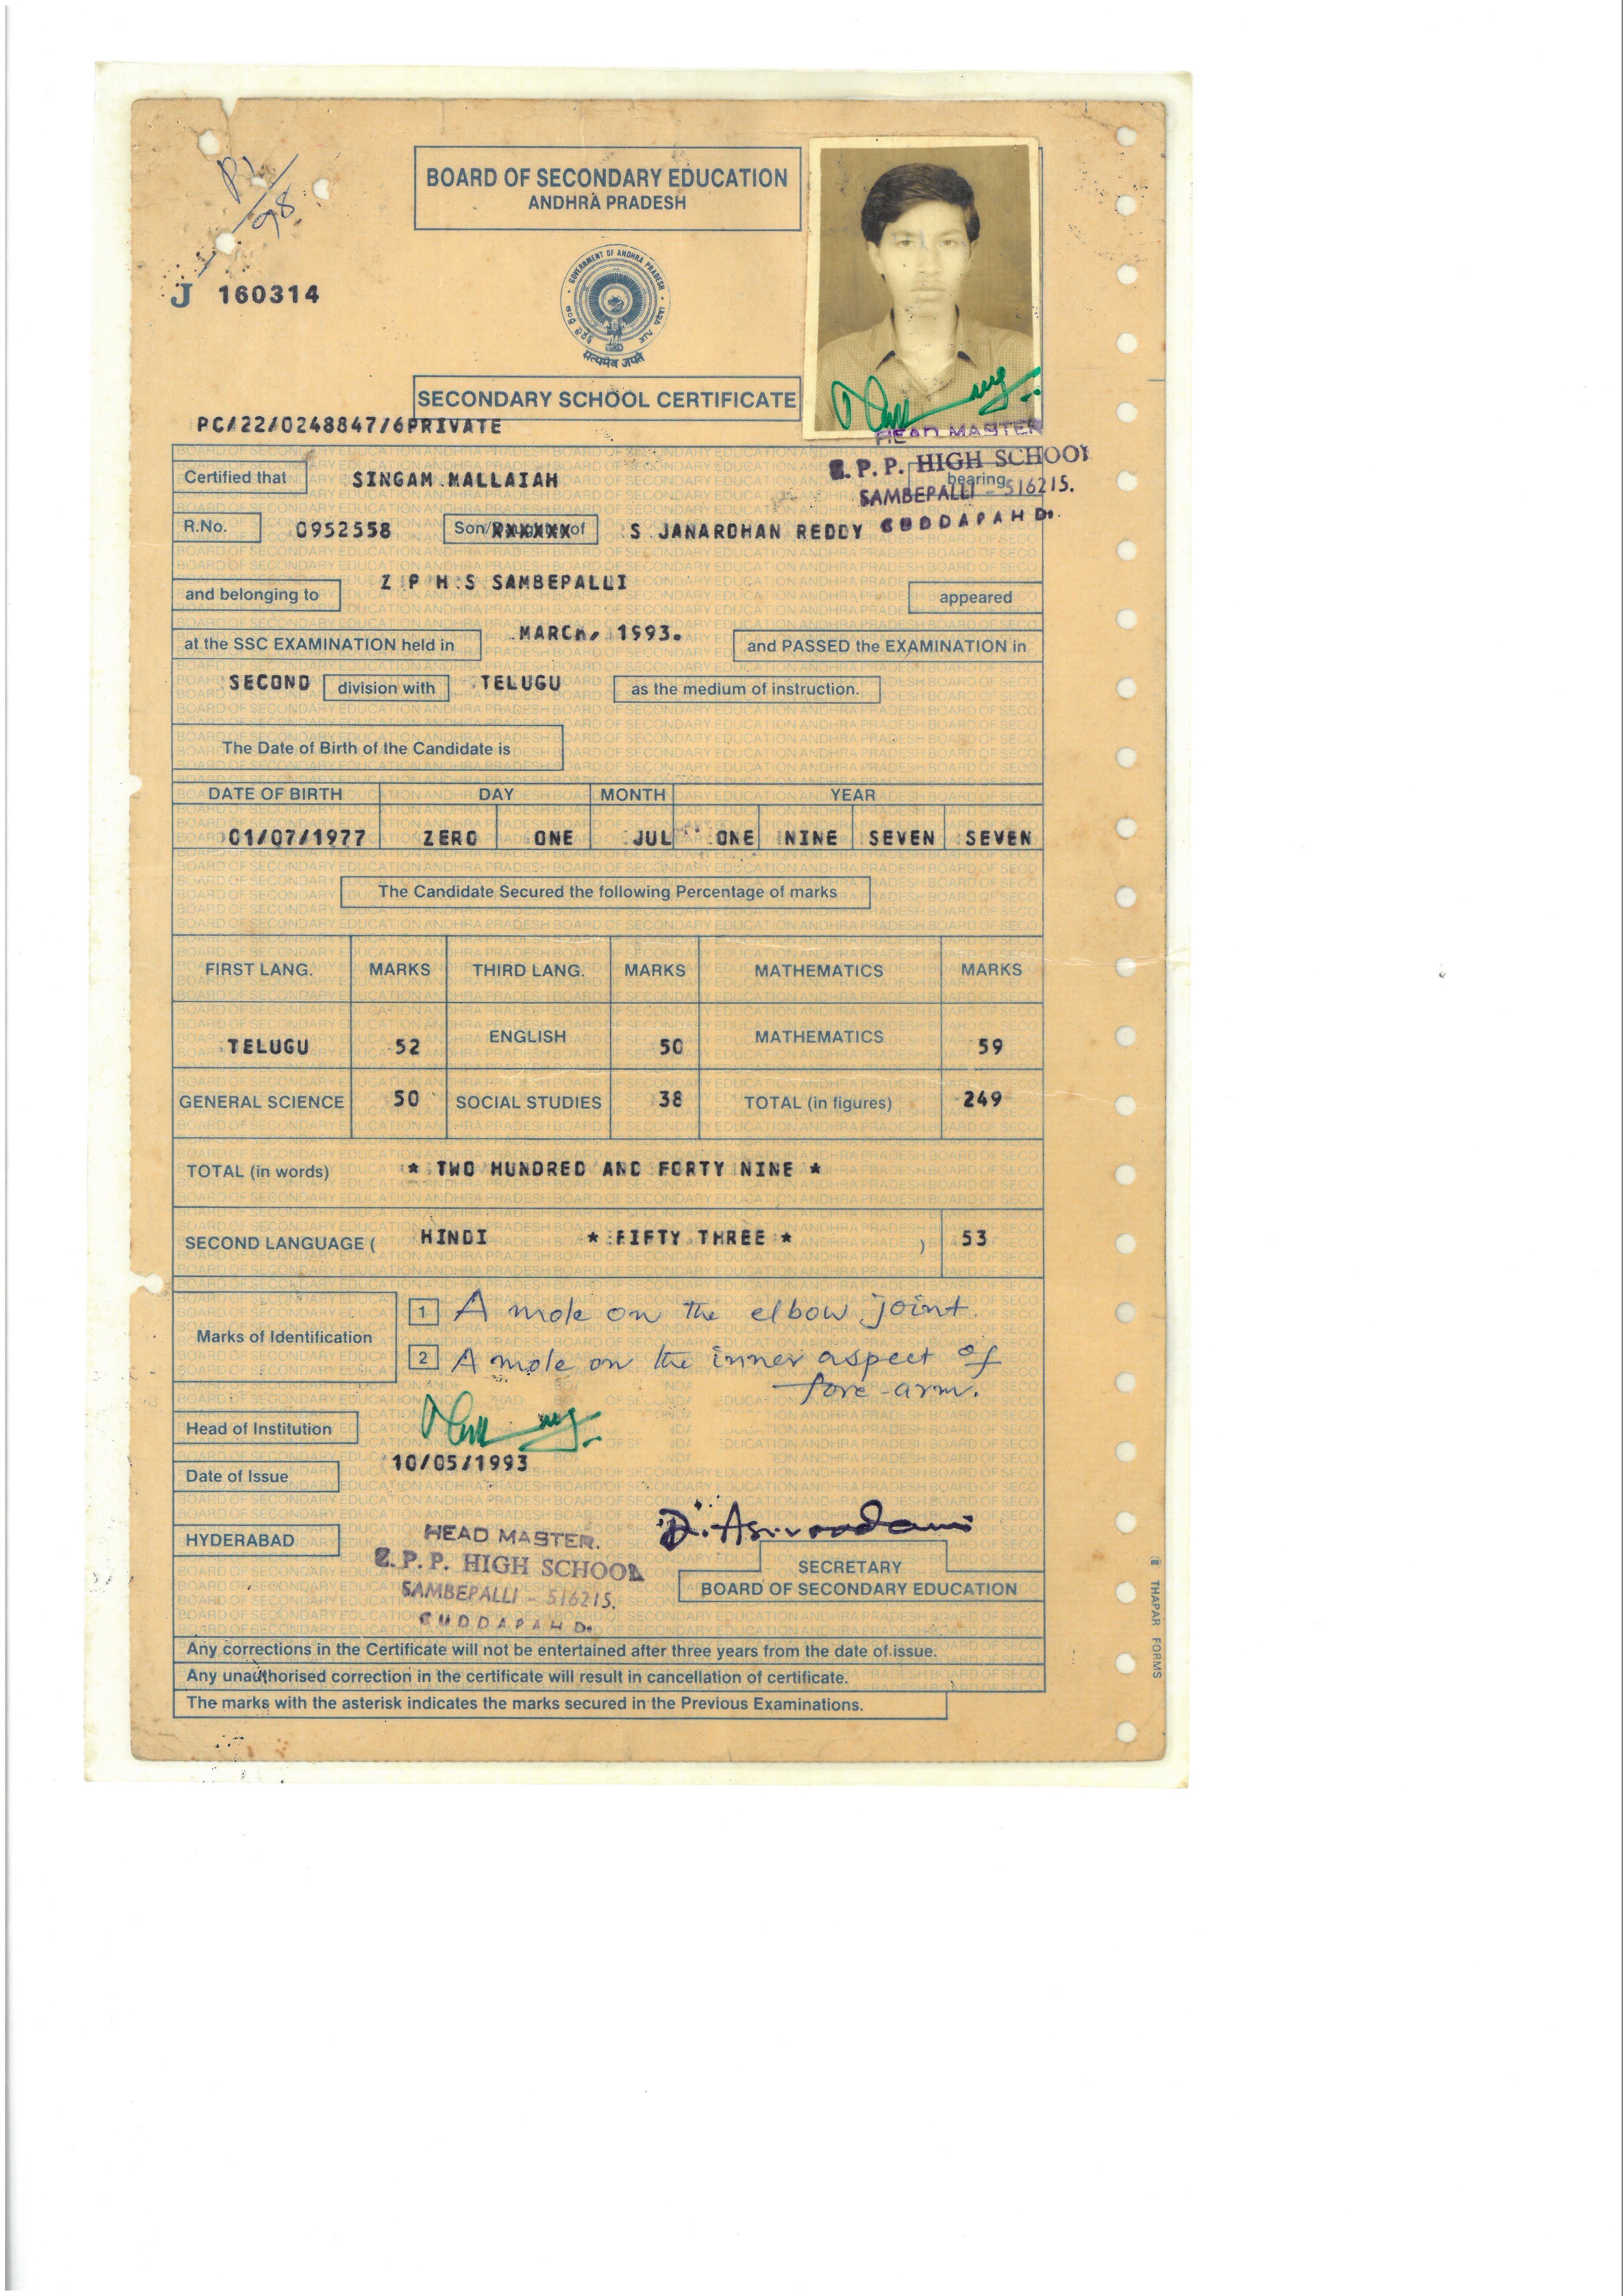 P1/98
BOARD OF SECONDARY EDUCATION
ANDHRA PRADESH
J 160314
GOVERNMENT OF ANDHRA PRADESH
सत्यमेव जयते
SECONDARY SCHOOL CERTIFICATE
PC/22/0248847/6PRIVATE
HEAD MASTER
Z.P.P. HIGH SCHOOL
SAMBEPALLI - 516215.
CUDDAPAH D.
Certified that SINGAM MALLAIAH bearing
R.No. 0952558 Son/XXXXXX of S JANARDHAN REDDY
and belonging to Z P H S SAMBEPALLI appeared
at the SSC EXAMINATION held in MARCH, 1993. and PASSED the EXAMINATION in
SECOND division with TELUGU as the medium of instruction.
The Date of Birth of the Candidate is
DATE OF BIRTH DAY MONTH YEAR
01/07/1977 ZERO ONE JUL ONE NINE SEVEN SEVEN
The Candidate Secured the following Percentage of marks
FIRST LANG. MARKS THIRD LANG. MARKS MATHEMATICS MARKS
TELUGU 52 ENGLISH 50 MATHEMATICS 59
GENERAL SCIENCE 50 SOCIAL STUDIES 38 TOTAL (in figures) 249
TOTAL (in words) * TWO HUNDRED AND FORTY NINE *
SECOND LANGUAGE ( HINDI * FIFTY THREE * ) 53
Marks of Identification
1 A mole on the elbow joint.
2 A mole on the inner aspect of
fore-arm.
Head of Institution
Date of Issue 10/05/1993
HYDERABAD
HEAD MASTER.
Z.P.P. HIGH SCHOOL
SAMBEPALLI - 516215.
CUDDAPAH D.
SECRETARY
BOARD OF SECONDARY EDUCATION
Any corrections in the Certificate will not be entertained after three years from the date of issue.
Any unauthorised correction in the certificate will result in cancellation of certificate.
The marks with the asterisk indicates the marks secured in the Previous Examinations.
THAPAR FORMS